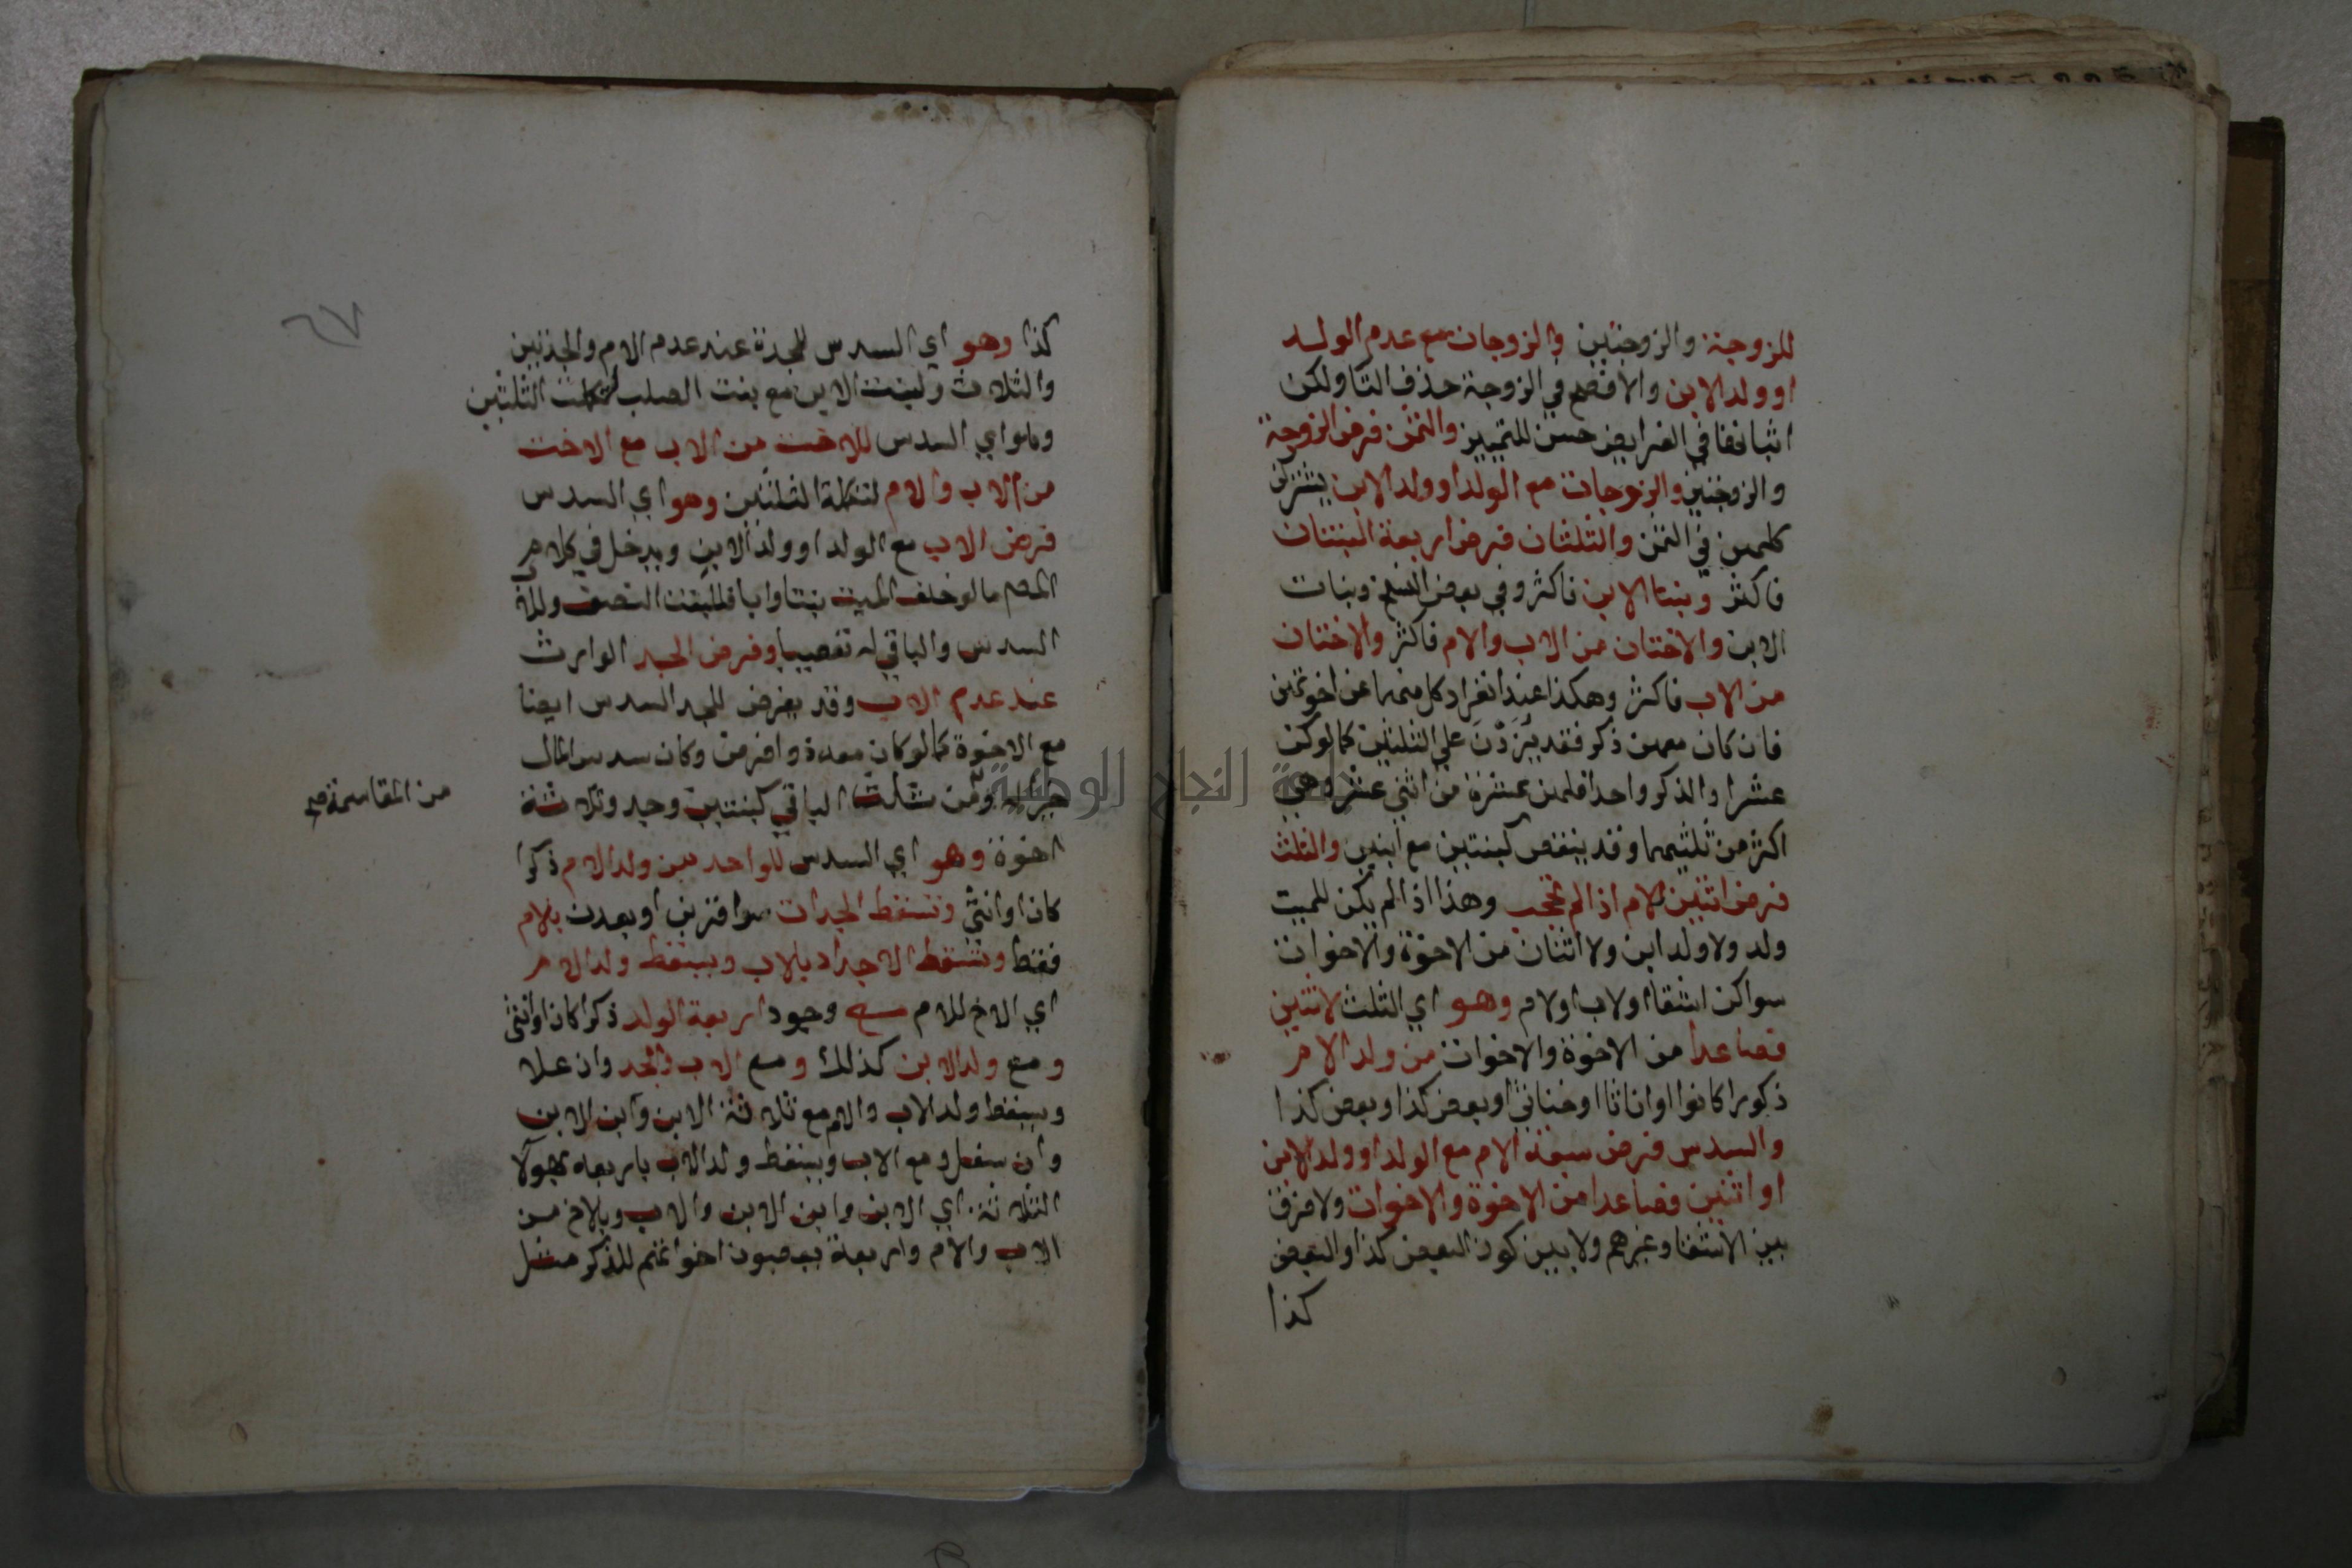 للزوجة والزوجتين والزوجات مع عدم الولد
او ولد الابن والافصح في الزوجة حذف التا ولكن
اثباتها في الفرايض حسن للتمييز والثمن فرض الزوجة
والزوجتين والزوجات مع الولد او ولد الابن يشتركن
كلهن في الثمن والثلثان فرض اربعة البنتان
فاكثر وبنتا الابن فاكثر وفي بعض النسخ وبنات
الابن والاختان من الاب والام فاكثر والاختان
من الاب فاكثر وهكذا عند انفراد كل منهما عن اخوتهن
فان كان معهن ذكر فقد يزدن على الثلثين كما لو كن
عشرا والذكر واحدا فلهن عشرة من اثني عشر وهي
اكثر من ثلثيهما وقد ينقص كبنتين مع ابنين والثلث
فرض اثنين الام اذا لم تحجب وهذا اذا لم يكن للميت
ولد ولا ولد ابن ولا اثنان من الاخوة والاخوات
سوا كن اشقا او لاب او لام وهو اي الثلث لاثنين
فصاعدا من الاخوة والاخوات من ولد الام
ذكورا كانوا او اناثا او خناثي او بعض كذا وبعض كذا
والسدس فرض سبعة الام مع الولد او ولد الابن
او اثنين فصاعدا من الاخوة والاخوات ولا فرق
بين الاشقا وغيرهم ولا بين كون البعض كذا والبعض
كذا
٦٧
كذا وهو اي السدس للجدة عند عدم الام والجدتين
والثلاث ولبنت الابن مع بنت الصلب لتكملت الثلثين
وهو اي السدس للاخت من الاب مع الاخت
من الاب والام لتكملة الثلثين وهو اي السدس
فرض الاب مع الولد او ولد الابن ويدخل في كلام
المصم ما لو خلف الميت بنتا وابا فللبنت النصف وللاب
السدس والباقي له تعصيبا وفرض الجد الوارث
عند عدم الاب وقد يفرض للجد السدس ايضا
مع الاخوة كما لو كان معه ذو فرض وكان سدس المال
خير له ومن ثلث الباقي كبنتين وجد وثلاثة
من المقاسمة صح
اخوة وهو اي السدس للواحد من ولد الام ذكرا
كان او انثى وتسقط الجدات سوا قربن او بعدن بالام
فقط وتسقط الاجداد بالاب ويسقط ولد الام
اي الاخ للام مع وجود اربعة الولد ذكرا كان او انثى
ومع ولد الابن كذلك ومع الاب والجد وان علا
ويسقط ولد الاب والام مع ثلاثة الابن وابن الابن
وان سفل ومع الاب ويسقط ولد الاب باربعة بهولا
الثلاثة اي الابن وابن الابن والاب وبالاخ من
الاب والام واربعة يعصبون اخواتهم للذكر مثل
جامعة النجاح الوطنية